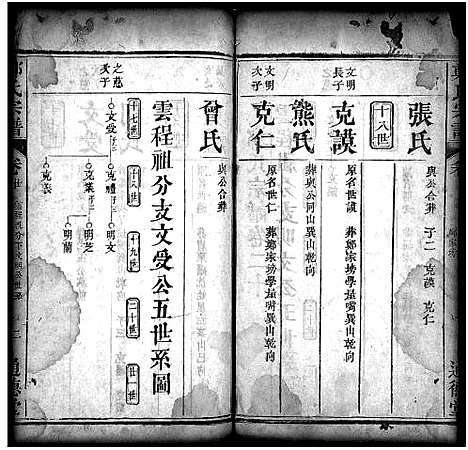 張氏
與公合葬 子二 克謨 克仁
十八世
文明長子
克謨
原名世謨 葬鄭家塝學堂嘴巽山乾向
熊氏
葬與公同山巽山乾向
文明次子
克仁
原名世仁 葬鄭家塝學堂嘴巽山乾向
曾氏
與公合葬
雲程祖分支文受公五世系圖
十七世 十八世 十九世 二十世 廿一世
之薳次子
文受 克禮 明文
克業 明芝
克表 明蘭
氏宗譜
卷廿
通德堂